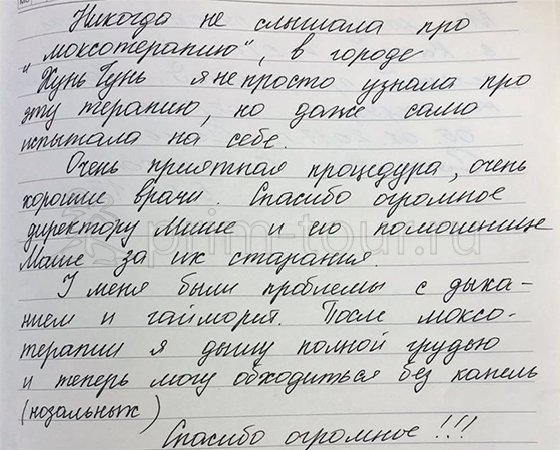 Никогда не слышала про
"моксотерапию", в городе
Хунь Чунь я не просто узнала про
эту терапию, но даже само
испытала на себе.
Очень приятная процедура, очень
хорошие врачи. Спасибо огромное
директору Мише и его помошнице
Маше за их старания.
У меня были проблемы с дыха-
нием и гайморит. После моксо-
терапии я дышу полной грудью
и теперь могу обходиться без капель
(нозальных)
Спасибо огромное!!!
prim-tour.ru